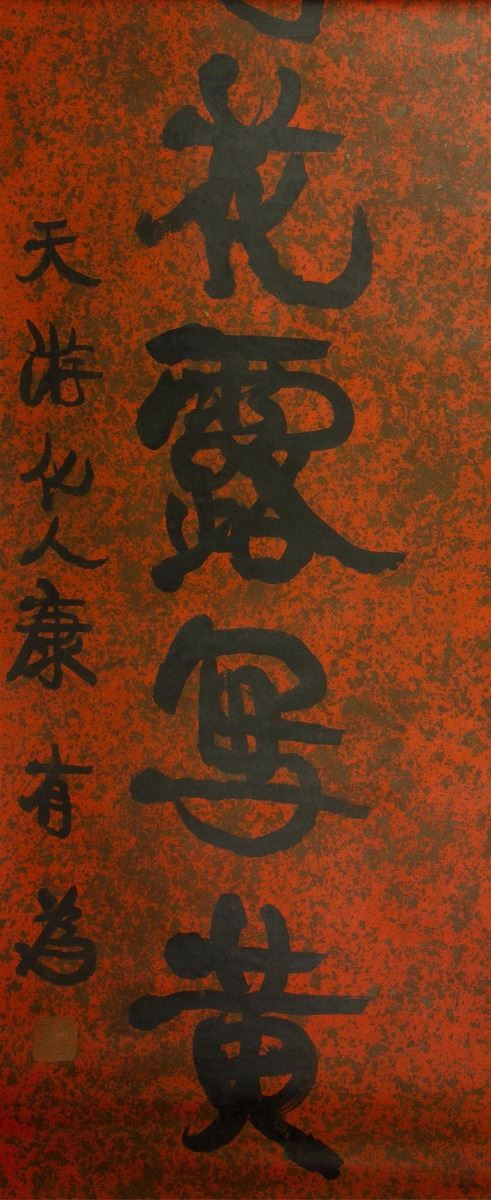 花露寫黃
天游化人康有為